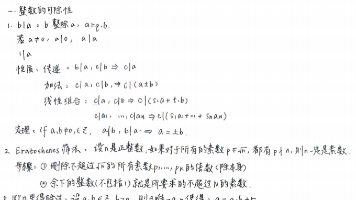 一. 整数的可除性
1. b|a = b 整除 a, a=q·b.
若 a≠0, a|0, a|a
1|a
性质: 传递: b|a, c|b ⇒ c|a
加法: c|a, c|b, ⇒ c|(a±b)
线性组合: c|a, c|b ⇒ c|(s·a+t·b)
c|a₁ ..., c|aₙ ⇒ c|(s₁a₁+...+sₙaₙ)
定理: if a,b≠0,∈Z. a|b, b|a ⇒ a=±b.
2. Eratoshenes 筛法: 设n是正整数, 如果对于所有的素数 p≤√n, 都有 p∤n, 则n一定是素数.
步骤: ① 删除不超过√n的所有素数p₁,...,pₖ的倍数
② 余下的整数(不包括1)就是所要求的不超过N的素数.